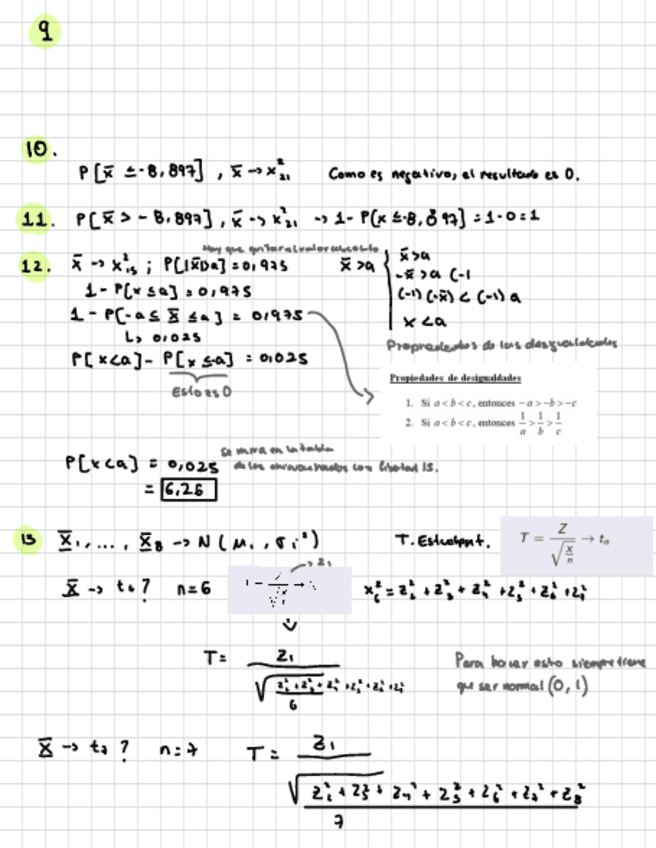 9
10.
P[x̄ ≤ -8,897] , x̄ → x²₂₁ Como es negativo, el resultado es 0.
11. P[x̄ > -8,897] , x̄ → x²₂₁ → 1 - P[x ≤ -8,897] = 1 - 0 = 1
Hay que quitar el valor absoluto
12. x̄ → x²₁₅ ; P[|x̄|>a] = 0,975
1 - P[x ≤ a] = 0,975
1 - P[-a ≤ x̄ ≤ a] = 0,975
↳ 0,025
P[x<a] - P[x ≤ a] = 0,025
Esto es 0
x̄ > a { x̄ > a
-x̄ > a (-1
(-1) (-x̄) < (-1) a
x < a
Propiedades de las desigualdades
Propiedades de desigualdades
1. Si a < b < c, entonces -a > -b > -c
2. Si a < b < c, entonces 1/a > 1/b > 1/c
P[x<a] = 0,025 Se mira en la tabla
de los con libertad 15.
= 6,26
13 x̄₁, ..., x̄₈ → N(μᵢ, σᵢ²) T. Estudent. T = Z / √(X/n) → tₙ
x̄ → t₆? n=6 x²₆ = z²₂ + z²₃ + z²₄ + z²₅ + z²₆ + z²₇
T = z₁ / √((z²₂ + z²₃ + z²₄ + z²₅ + z²₆ + z²₇) / 6)
Para hacer esto siempre tiene
que ser normal (0,1)
x̄ → t₇? n=7 T = z₁ / √((z²₂ + z²₃ + z²₄ + z²₅ + z²₆ + z²₇ + z²₈) / 7)